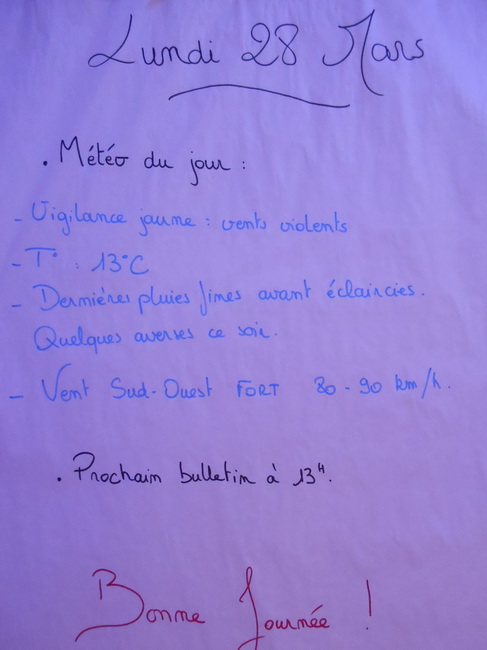 Lundi 28 Mars
. Météo du jour :
- Vigilance jaune : vents violents
- T° : 13°C
- Dernières pluies fines avant éclaircies.
Quelques averses ce soir.
- Vent Sud-Ouest FORT 80-90 km/h.
. Prochain bulletin à 13H.
Bonne Journée !